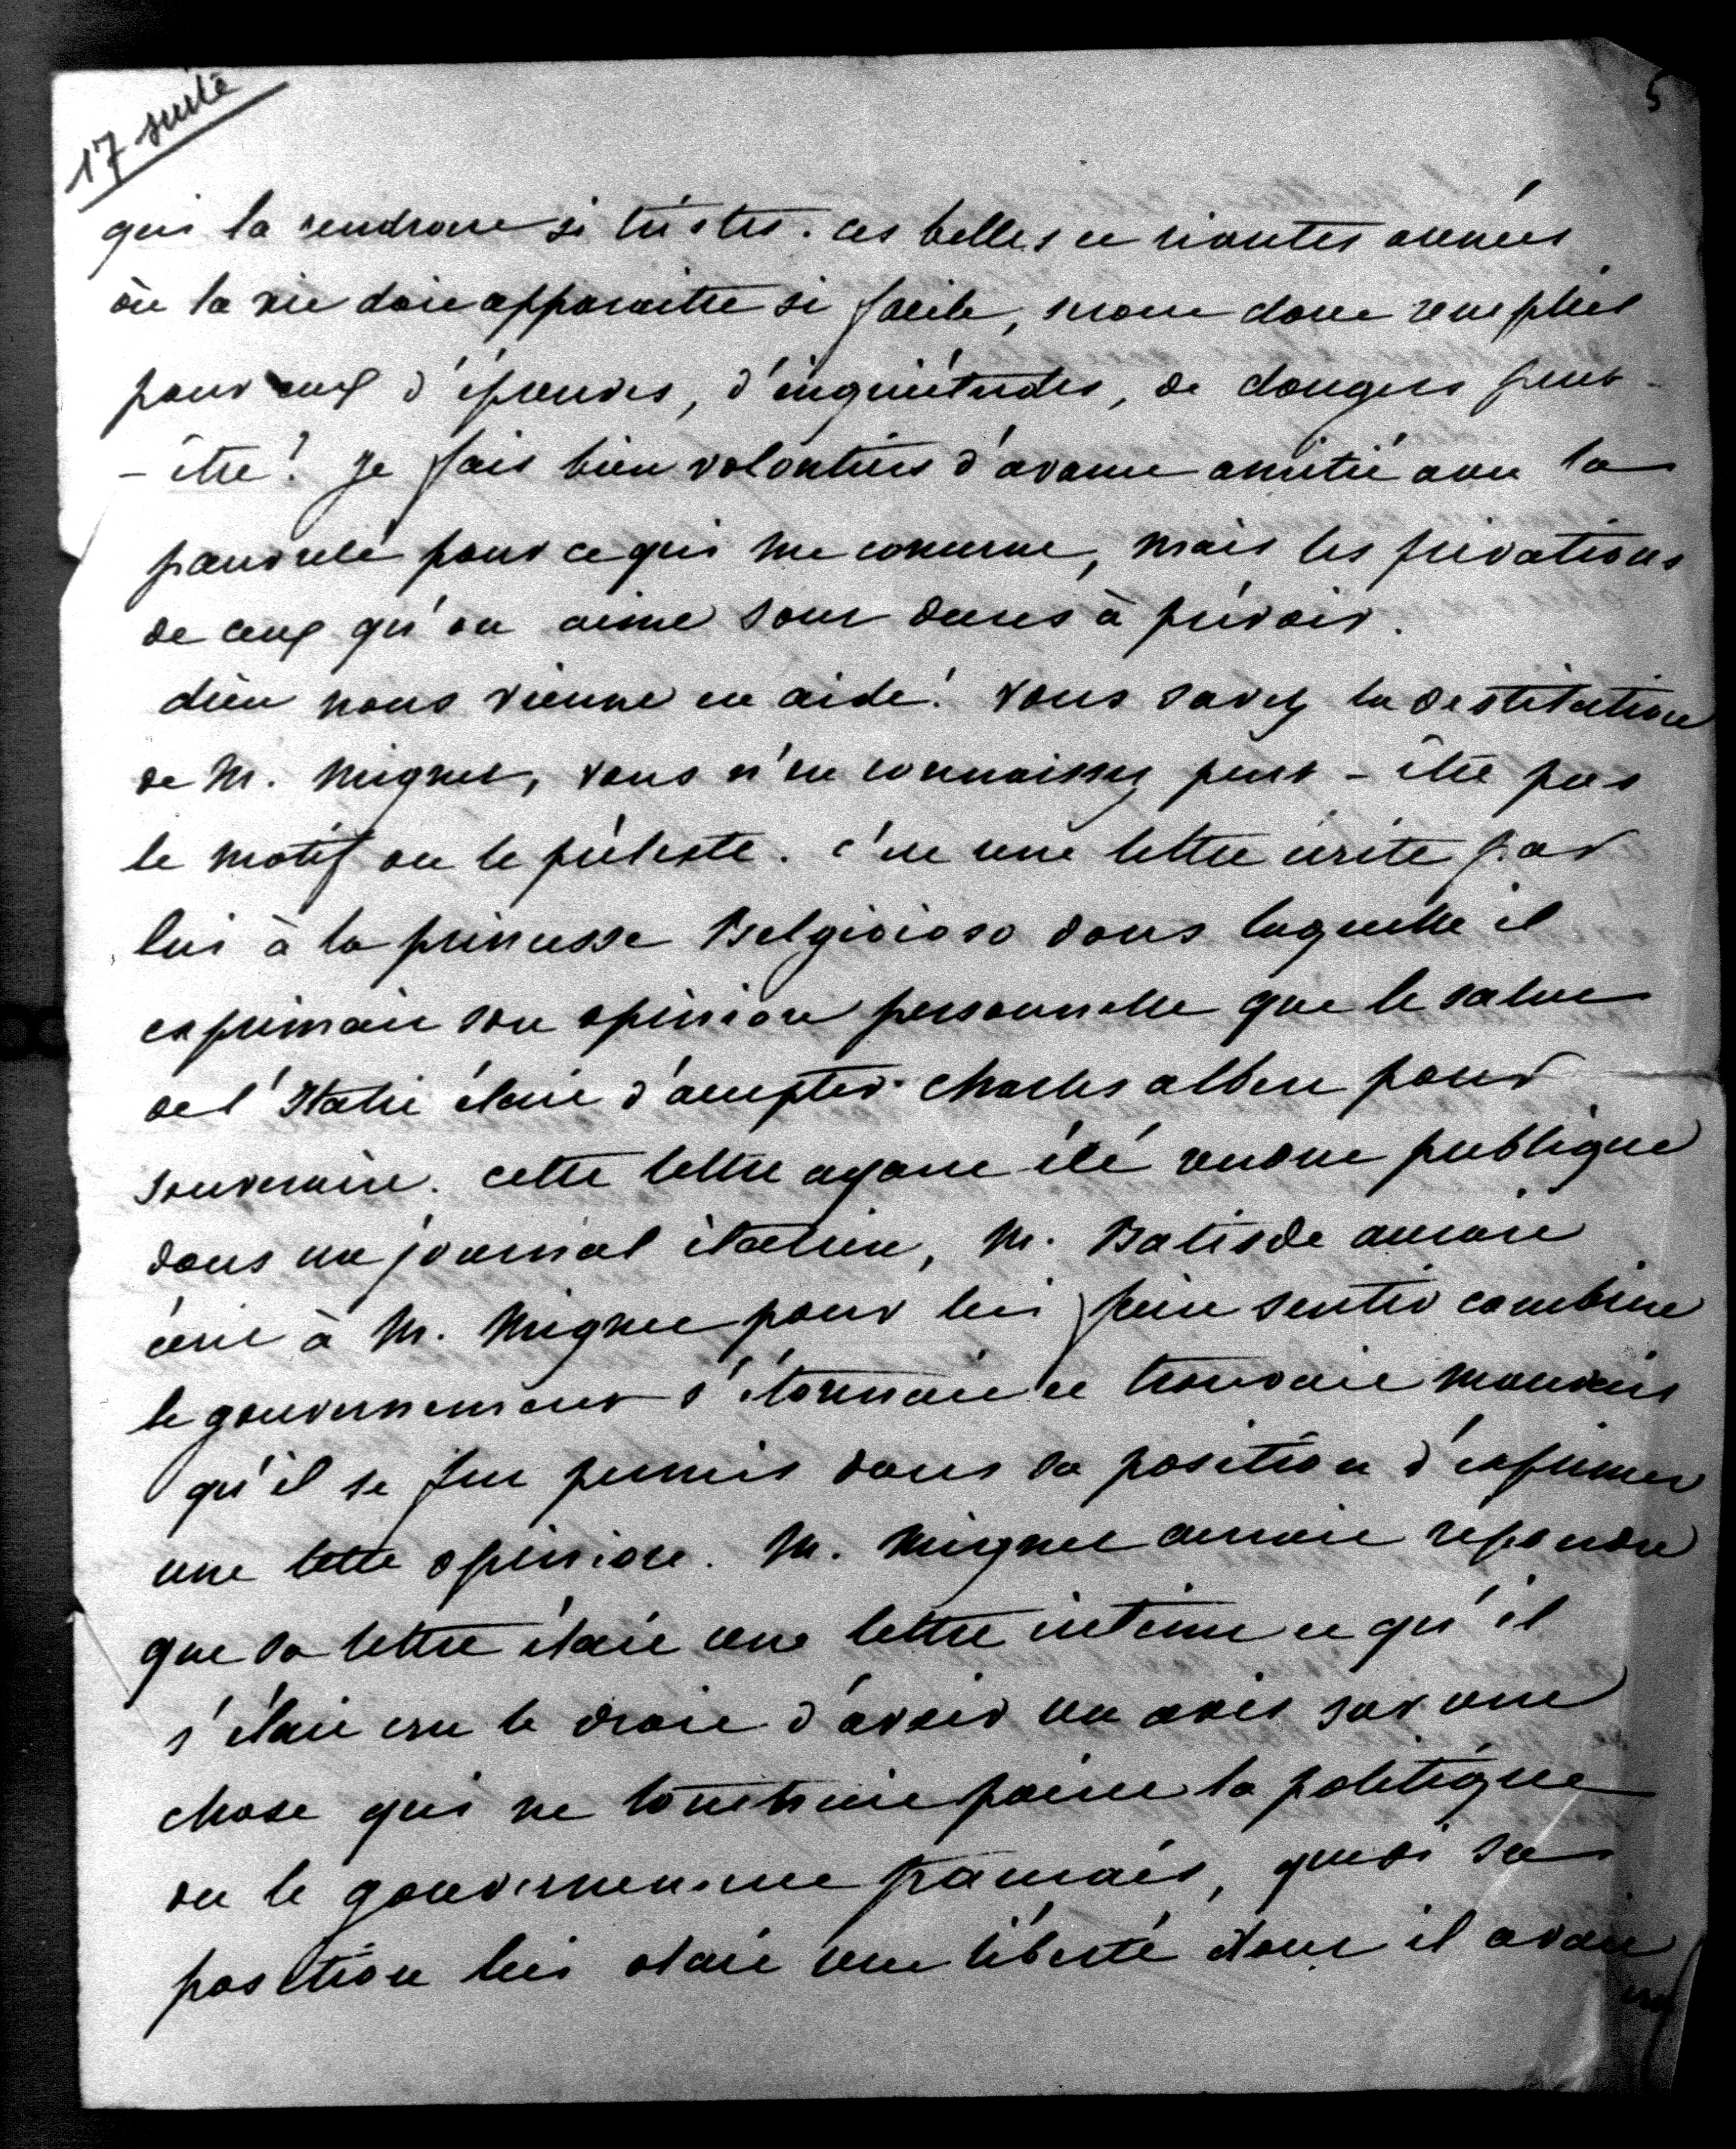 17 suite
5
qui la rendront si tristes. ces belles et riantes années
où la vie doit apparaitre si facile, seront donc remplies
pour eux d'épreuves, d'inquiétudes, de dangers peut-
-être! je fais bien volontiers d'avance amitié avec la
pauvreté pour ce qui me concerne, mais les privations
de ceux qu'on aime sont dures à prévoir.
dieu nous vienne en aide! vous savez la destitution
de M. Mignet, vous n'en connaissez peut-être pas
le motif ou le prétexte. c'est une lettre écrite par
lui à la princesse Belgioioso dans laquelle il
exprimait son opinion personnelle que le salut
de l'Italie était d'accepter Charles albert pour
souverain. cette lettre ayant été rendue publique
dans un journal italien, M. Batisde aurait
écrit à M. Mignet pour lui faire sentir combien
le gouvernement s'étonnait et trouvait mauvais
qu'il se fut permis dans sa position d'exprimer
une telle opinion. M. Mignet aurait répondu
que sa lettre était une lettre intime et qu'il
s'était cru le droit d'avoir un avis sur une
chose qui ne touchait point la politique
ou le gouvernement français, que si sa
position lui otait une liberté dont il avait